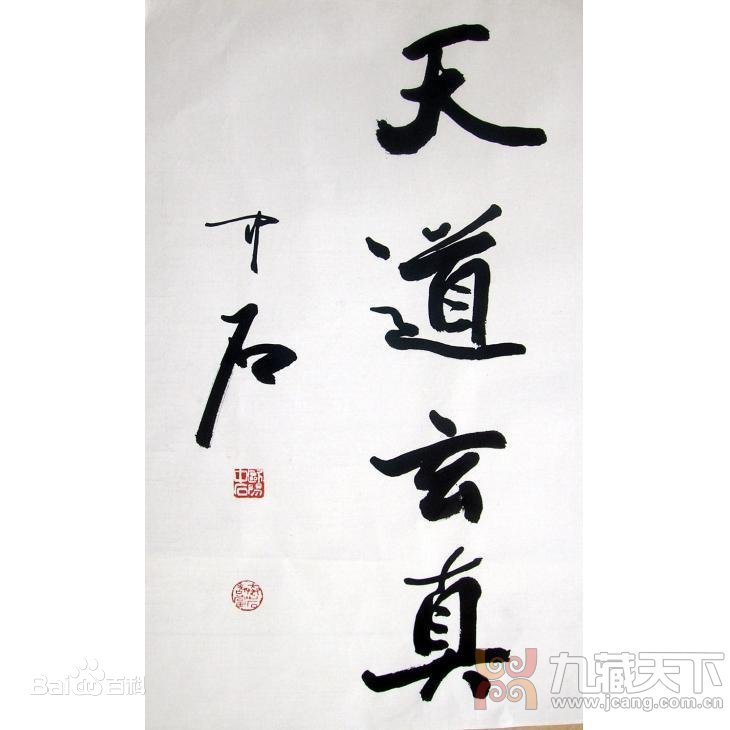 天道玄真
中石
欧阳中石
Baidu百科
九藏天下
www.jcang.com.cn